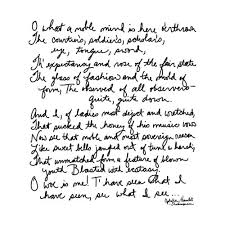 O what a noble mind is here o'erthrown
The courtier's, soldier's, scholar's,
eye, tongue, sword,
Th' expectancy and rose of the fair state
The glass of fashion and the mold of
form, The observed of all observers
quite, quite down.
And I, of ladies most deject and wretched,
That sucked the honey of his music vows
Now see that noble and most sovereign reason
Like sweet bells jangled out of tune & harsh,
That unmatched form & feature of blown
youth Blasted with ecstasy.
O woe is me! T' have seen what I
have seen, see what I see...
Ophelia, Hamlet
Shakespeare